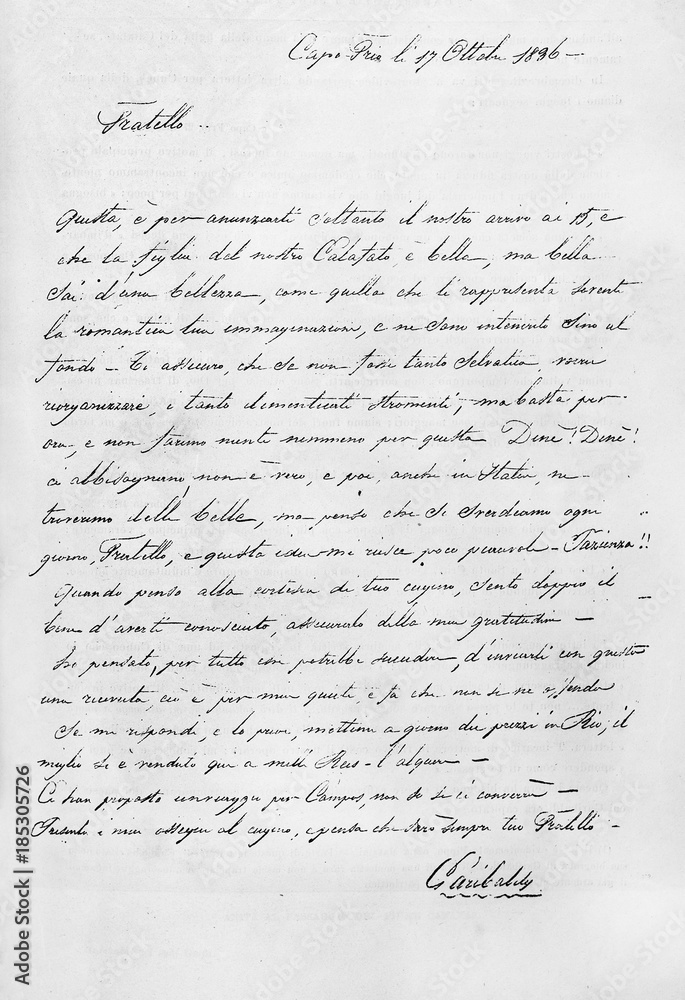 Capo Frio li 17 Ottobre 1836 —
Fratello ..
Questa, è per anunziarti soltanto il nostro arrivo ai 15, e
che la figlia del nostro Calafato, è bella, ma bella
sai d'una bellezza, come quella che ti rappresenta sovente
la romantica tua immaginazione, e ne sono intenerito sino al
fondo — Ti assicuro, che se non fossi tanto selvatico, vorrei
riorganizzare, i tanto dimenticati stromenti, ma basta per
ora, e non faremo niente nemmeno per questa Dene! Dene!
ci abbisognano, non è vero, e poi, anche in Italia, ne
troveremo delle belle, ma penso che si sverdiamo ogni
giorno, Fratello, e questa idea me riesce poco piacevole — Pazienza!!
Quando penso alla cortesia di tuo cugino, sento doppio il
bene d'averti conosciuto, assicuralo della mia gratitudine —
Ho pensato, per tutto che potrebbe succedere, d'inviarti con questa
una ricevuta, ciò è per mia quiete, e fa che non se ne offenda
Se me rispondi, e lo puoi, mettimi a giorno dei prezzi in Rio, il
miglio si è venduto qua a mille Reis — l'alquere —
Ci han proposto un viaggio per Campos, non so se ci converrà —
Presenta i miei ossequi al cugino, e pensa che sarò sempre tuo Fratello —
Garibaldi
Adobe Stock | #185305726